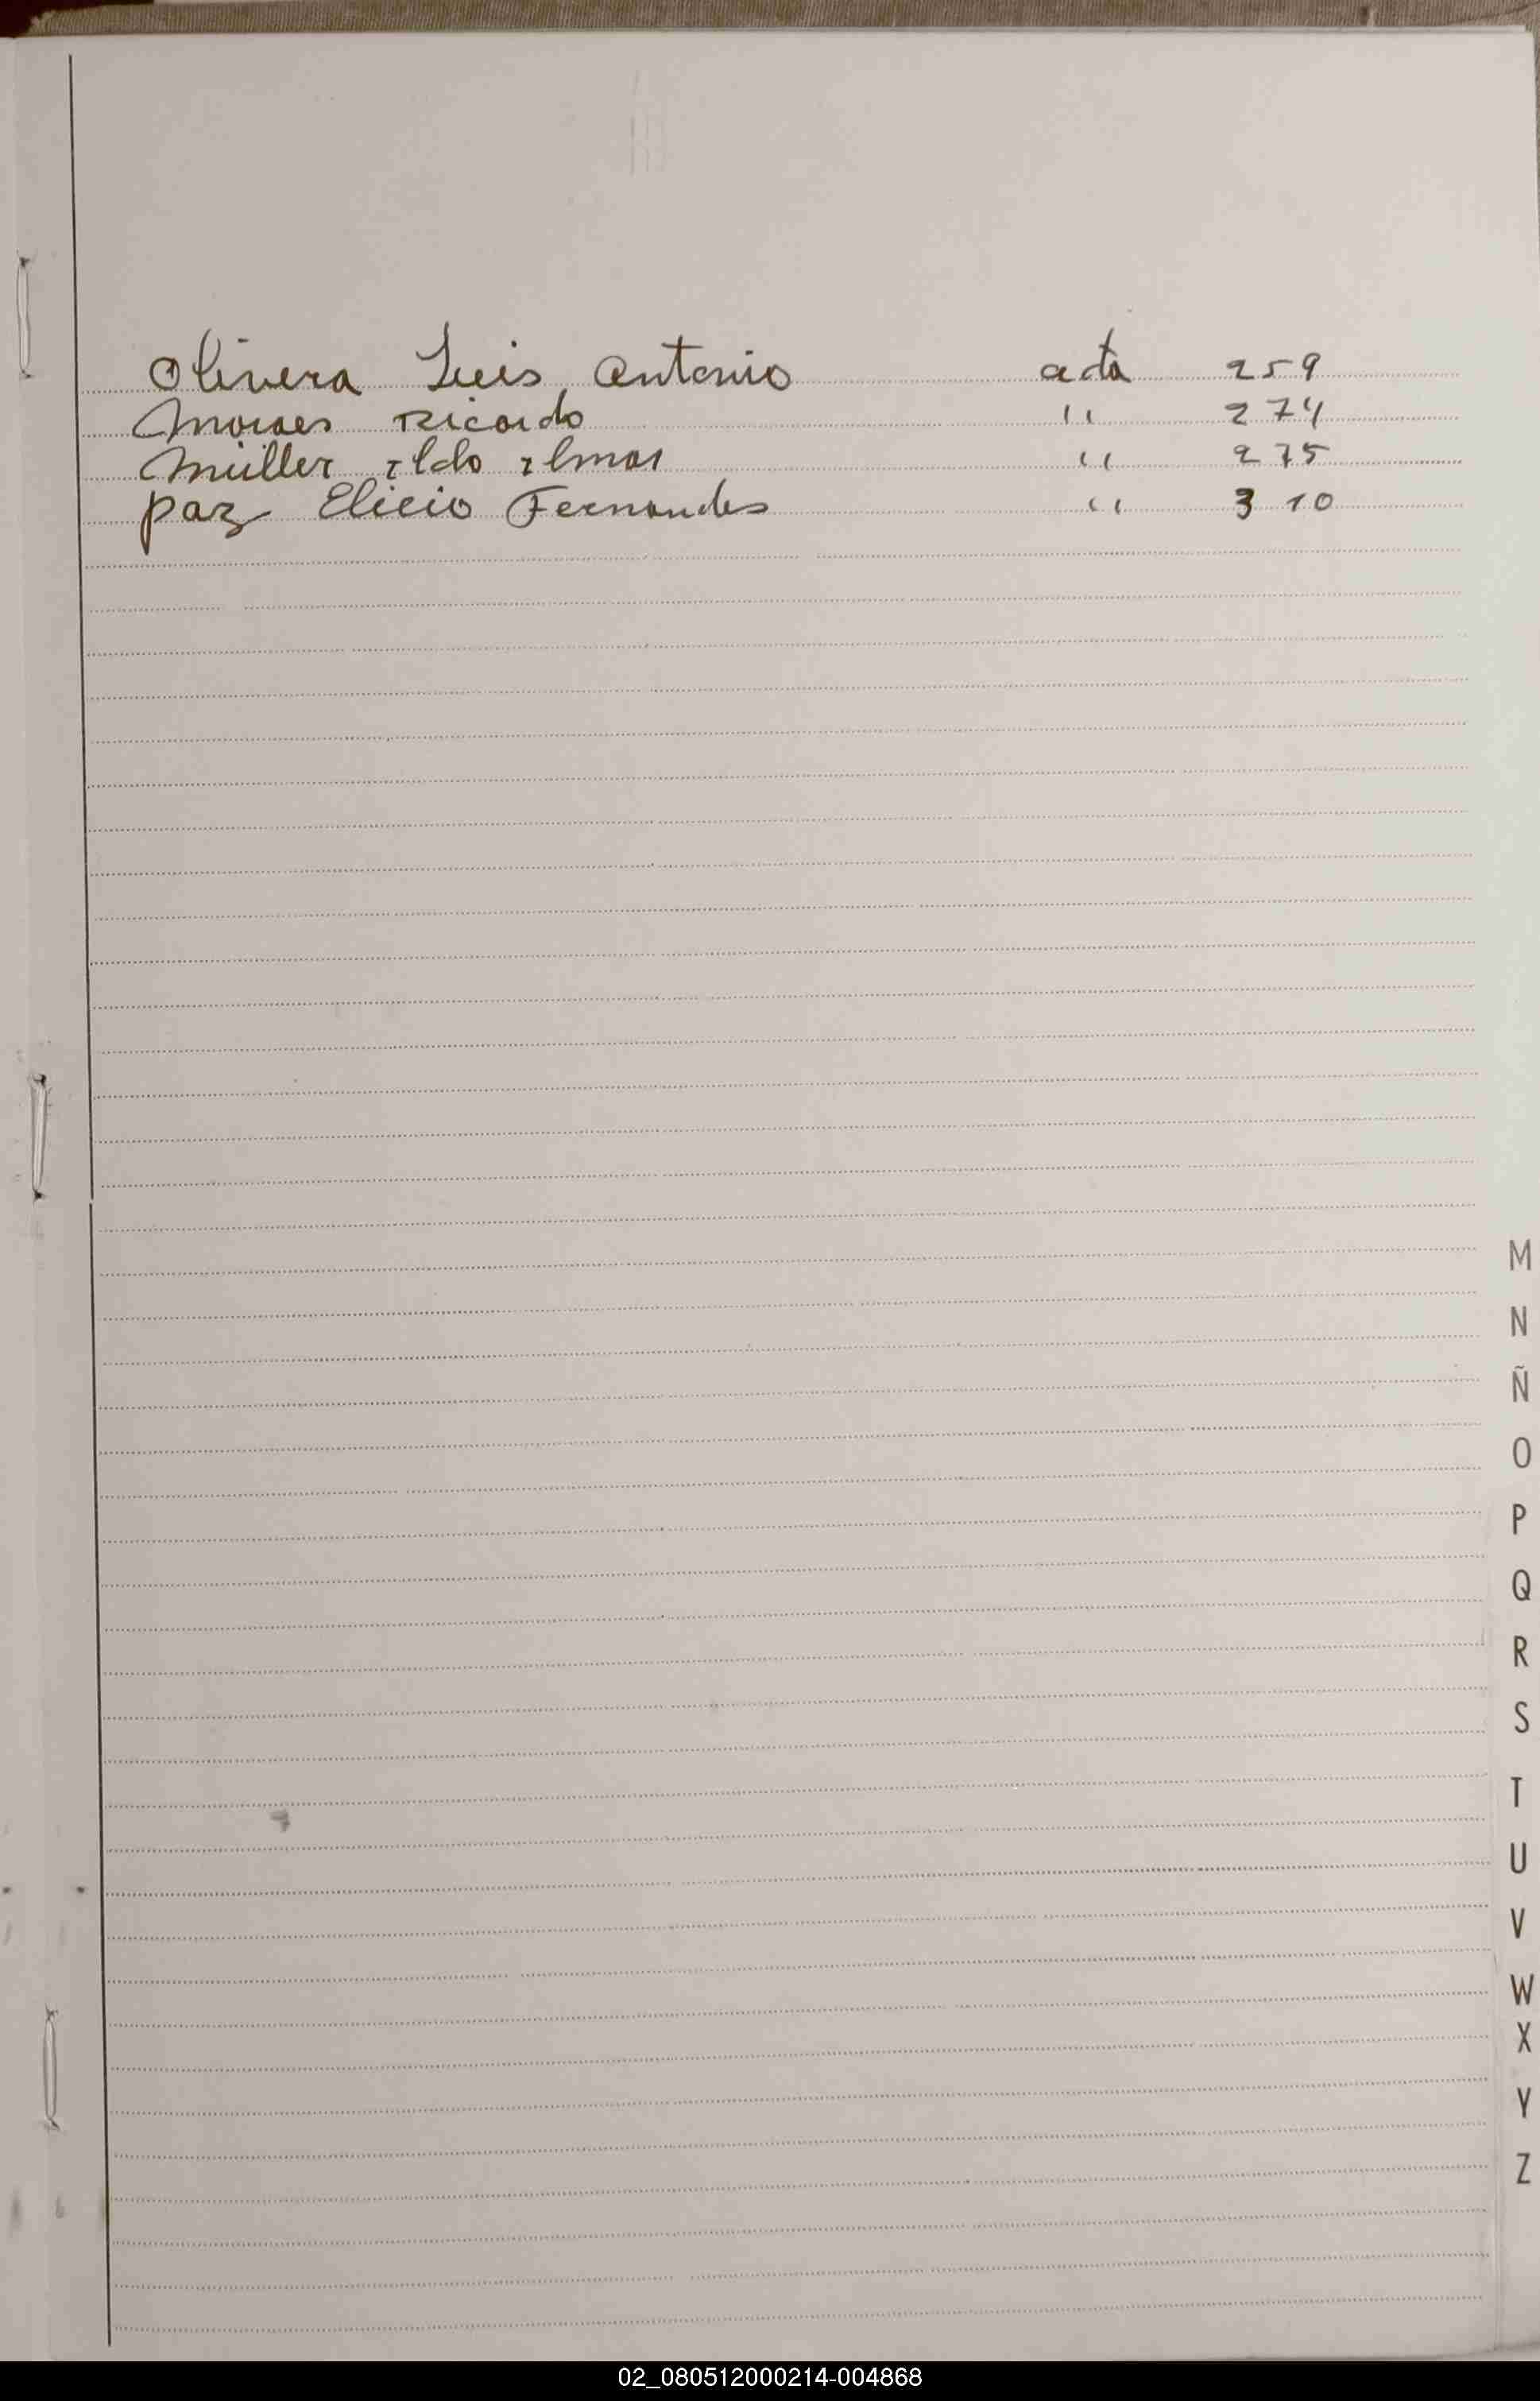 Olivera Luis Antonio acta 259
Moraes Ricardo " 274
Müller Ildo Ilmar " 275
paz Elicio Fernandes " 310
M
N
Ñ
O
P
Q
R
S
T
U
V
W
X
Y
Z
02_080512000214-004868